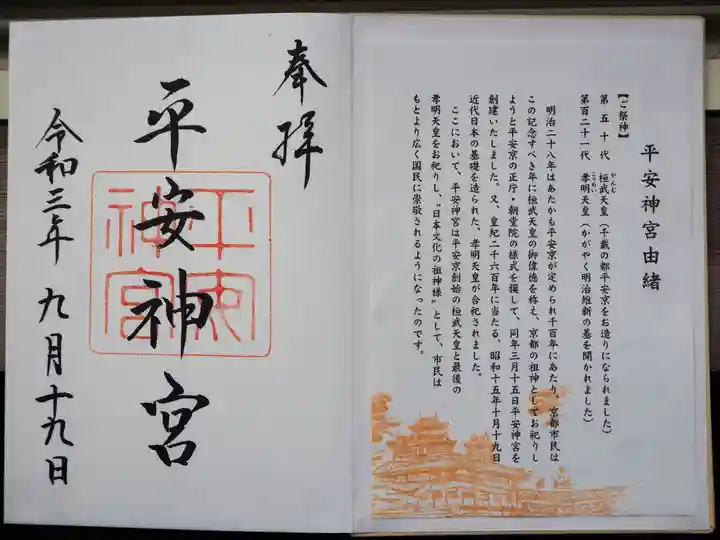 奉拝
平安神宮
平安神宮
令和三年九月十九日
平安神宮由緒
【ご祭神】
第五十代 桓武天皇（千載の都平安京をお造りになられました）
かんむ
第百二十一代 孝明天皇（かがやく明治維新の基を開かれました）
こうめい
明治二十八年はあたかも平安京が定められ千百年にあたり、京都市民は
この記念すべき年に桓武天皇の御偉徳を称え、京都の祖神としてお祀りし
ようと平安京の正庁・朝堂院の様式を模して、同年三月十五日平安神宮を
創建いたしました。又、皇紀二千六百年に当たる、昭和十五年十月十九日
近代日本の基礎を造られた、孝明天皇が合祀されました。
ここにおいて、平安神宮は平安京創始の桓武天皇と最後の
孝明天皇をお祀りし、〝日本文化の祖神様〟として、市民は
もとより広く国民に崇敬されるようになったのです。